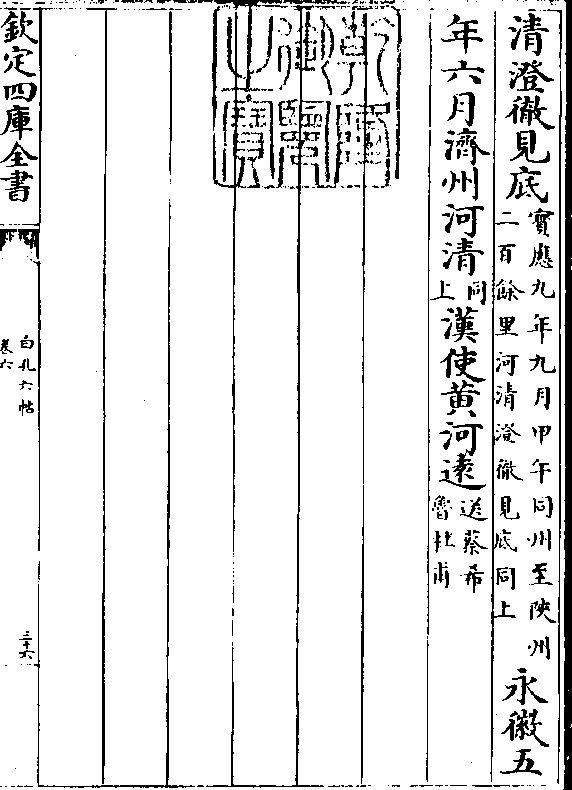 清澄徹見底寶應九年九月甲午同州至陜州二百餘里河清澄徹見底同上永徽五
年六月濟州河清同上漢使黄河遠送蔡希魯杜甫
乾隆御覽之寶
欽定四庫全書
白孔六帖
卷六
三十六